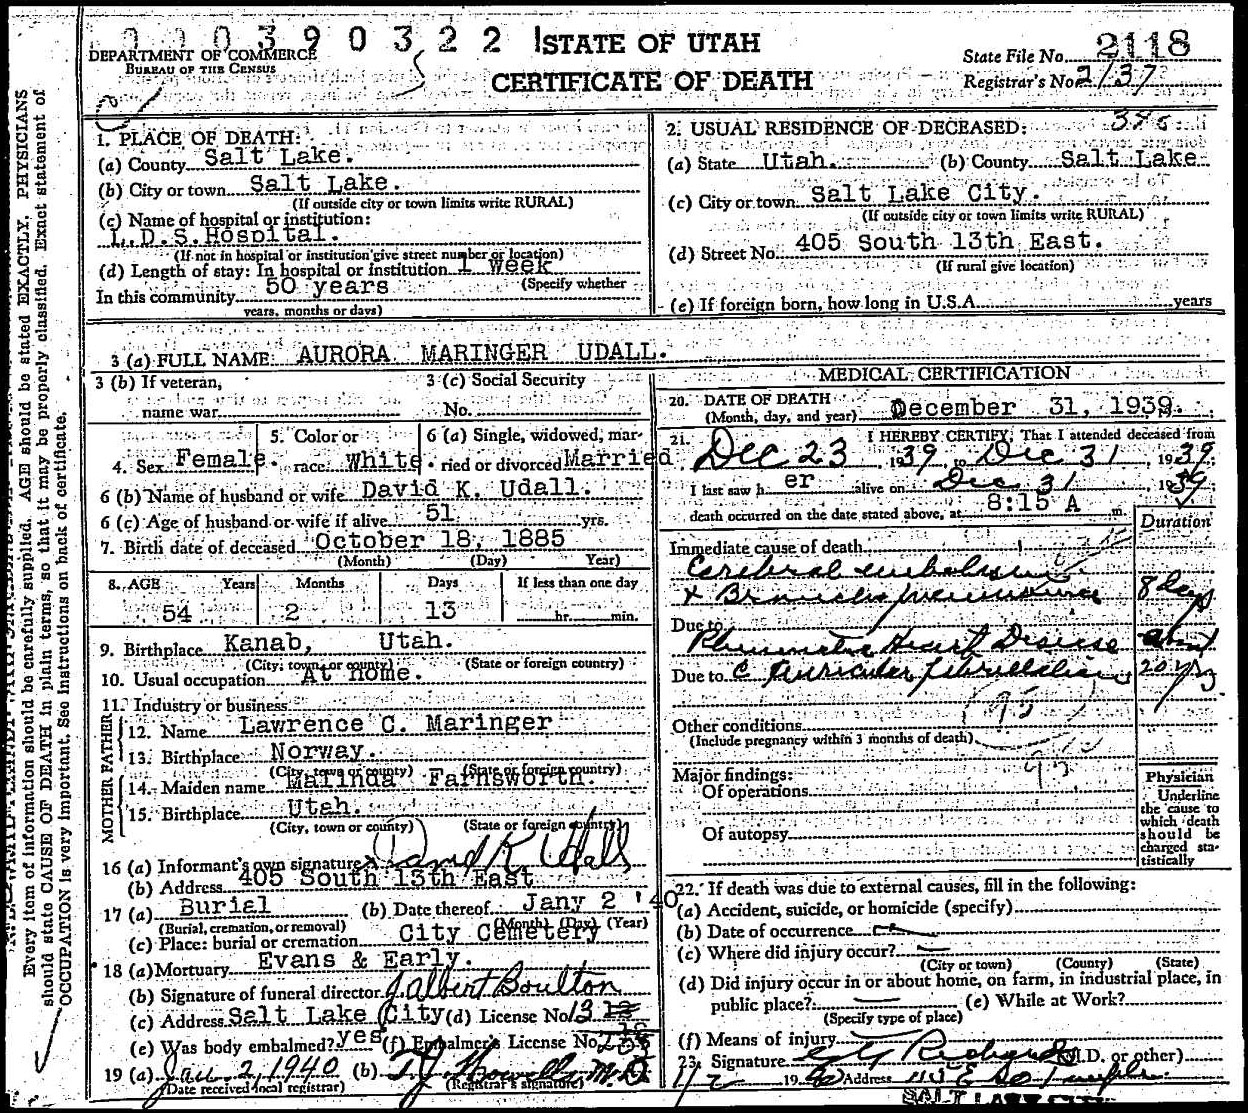 0 0 0 3 9 0 3 2 2
STATE OF UTAH
DEPARTMENT OF COMMERCE
BUREAU OF THE CENSUS
CERTIFICATE OF DEATH
State File No. 2118
Registrar's No. 2137
1. PLACE OF DEATH:
(a) County Salt Lake.
(b) City or town Salt Lake.
(If outside city or town limits write RURAL)
(c) Name of hospital or institution:
L.D.S. Hospital.
(If not in hospital or institution give street number or location)
(d) Length of stay: In hospital or institution 1 week
(Specify whether
In this community 50 years
years, months or days)
2. USUAL RESIDENCE OF DECEASED:
(a) State Utah. (b) County Salt Lake
(c) City or town Salt Lake City.
(If outside city or town limits write RURAL)
(d) Street No. 405 South 13th East.
(If rural give location)
(e) If foreign born, how long in U.S.A. years
3 (a) FULL NAME: AURORA MARINGER UDALL.
3 (b) If veteran,
name war
3 (c) Social Security
No.
4. Sex Female. 5. Color or race White. 6 (a) Single, widowed, married or divorced Married
6 (b) Name of husband or wife David K. Udall.
6 (c) Age of husband or wife if alive 51 yrs.
7. Birth date of deceased October 18, 1885
(Month) (Day) Year)
8. AGE Years Months Days If less than one day
54 2 13 hr. min.
9. Birthplace Kanab, Utah.
(City, town or county) (State or foreign country)
10. Usual occupation At home.
11. Industry or business
FATHER
12. Name Lawrence C. Maringer
13. Birthplace Norway.
(City, town or county) (State or foreign country)
MOTHER
14. Maiden name Malinda Farnsworth.
15. Birthplace Utah.
(City, town or county) (State or foreign country)
16 (a) Informant's own signature x David K Udall
(b) Address 405 South 13th East
17 (a) Burial (b) Date thereof Jany 2 '40
(Burial, cremation, or removal) (Month) (Day) (Year)
(c) Place: burial or cremation City Cemetery
18 (a) Mortuary Evans & Early.
(b) Signature of funeral director J. Albert Boulton
(c) Address Salt Lake City (d) License No. 13
(e) Was body embalmed? yes (f) Embalmer's License No.
19 (a) Jan 2, 1940 (b) T.J. Howells M.D.
(Date received local registrar) (Registrar's signature)
MEDICAL CERTIFICATION
20. DATE OF DEATH
(Month, day, and year) December 31, 1939.
21. I HEREBY CERTIFY, That I attended deceased from
Dec 23 1939 to Dec 31, 1939
I last saw h er alive on Dec 31 1939
death occurred on the date stated above, at 8:15 A m.
Duration
Immediate cause of death
Cerebral embolism
& Broncho pneumonia 8 days
Due to
Rheumatic Heart Disease about
Due to c Auricular fibrillation 20 yrs
95
Other conditions
(Include pregnancy within 3 months of death)
95
Major findings:
Of operations
Of autopsy
Physician
Underline
the cause to
which death
should be
charged sta-
tistically
22. If death was due to external causes, fill in the following:
(a) Accident, suicide, or homicide (specify)
(b) Date of occurrence
(c) Where did injury occur?
(City or town) (County) (State)
(d) Did injury occur in or about home, on farm, in industrial place, in
public place? (e) While at Work?
(Specify type of place)
(f) Means of injury
23. Signature G G Richards (M.D. or other)
1/2 1940 Address 115 E So Temple
SALT LAKE CITY
Every item of information should be carefully supplied. AGE should be stated EXACTLY. PHYSICIANS
should state CAUSE OF DEATH in plain terms, so that it may be properly classified. Exact statement of
OCCUPATION is very important. See instructions on back of certificate.